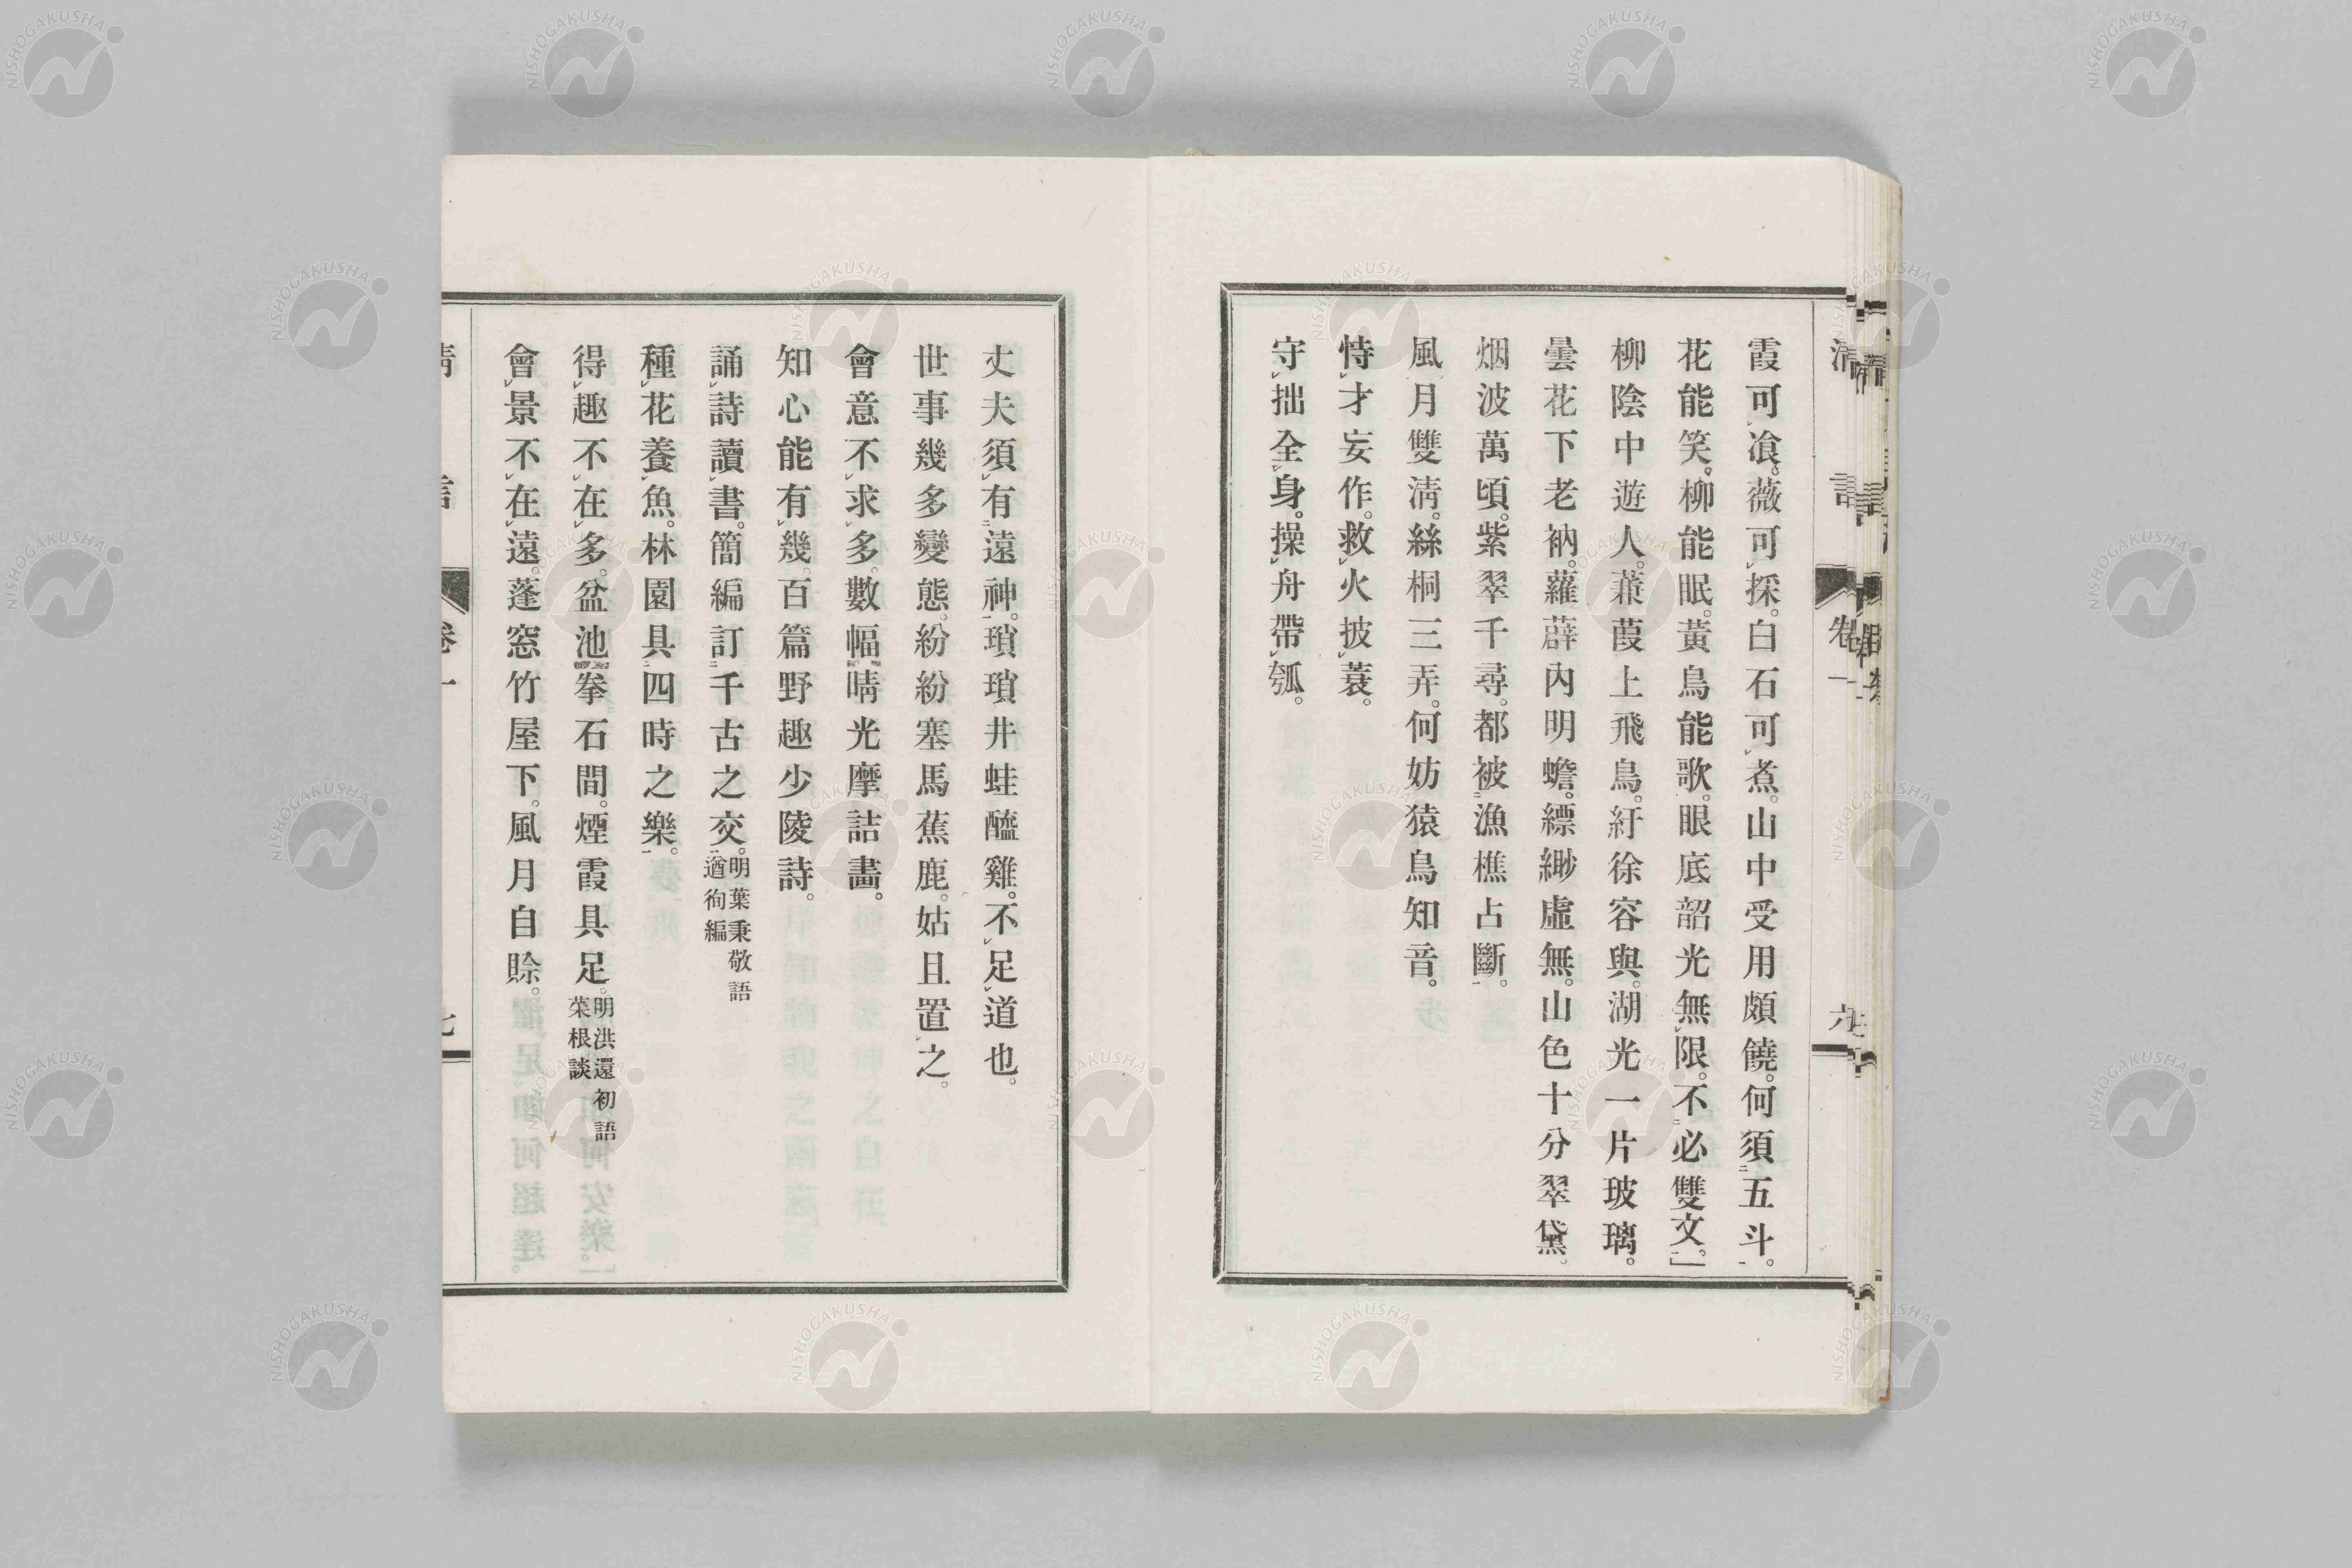 霞可飡。薇可採。白石可煮。山中受用頗饒。何須五斗。
花能笑。柳能眠。黃鳥能歌。眼底韶光無限。不必雙文。」
柳陰中遊人。蒹葭上飛鳥。紆徐容與。湖光一片玻璃。
曇花下老衲。蘿薜內明蟾。縹緲虛無。山色十分翠黛。
烟波萬頃。紫翠千尋。都被漁樵占斷。
風月雙淸。絲桐三弄。何妨猿鳥知音。
恃才妄作。救火披蓑。
守拙全身。操舟帶瓠。
丈夫須有遠神。瑣瑣井蛙醯雞。不足道也。
世事幾多變態。紛紛塞馬蕉鹿。姑且置之。
會意不求多。數幅晴光摩詰畵。
知心能有幾。百篇野趣少陵詩。
誦詩讀書。簡編訂千古之交。明葉秉敬語遒徇編
種花養魚。林園具四時之樂。
得趣不在多。盆池拳石間。煙霞具足。明洪還初語菜根談
會景不在遠。蓬窓竹屋下。風月自賒。
淸言
卷一
六
NISHOGAKUSHA